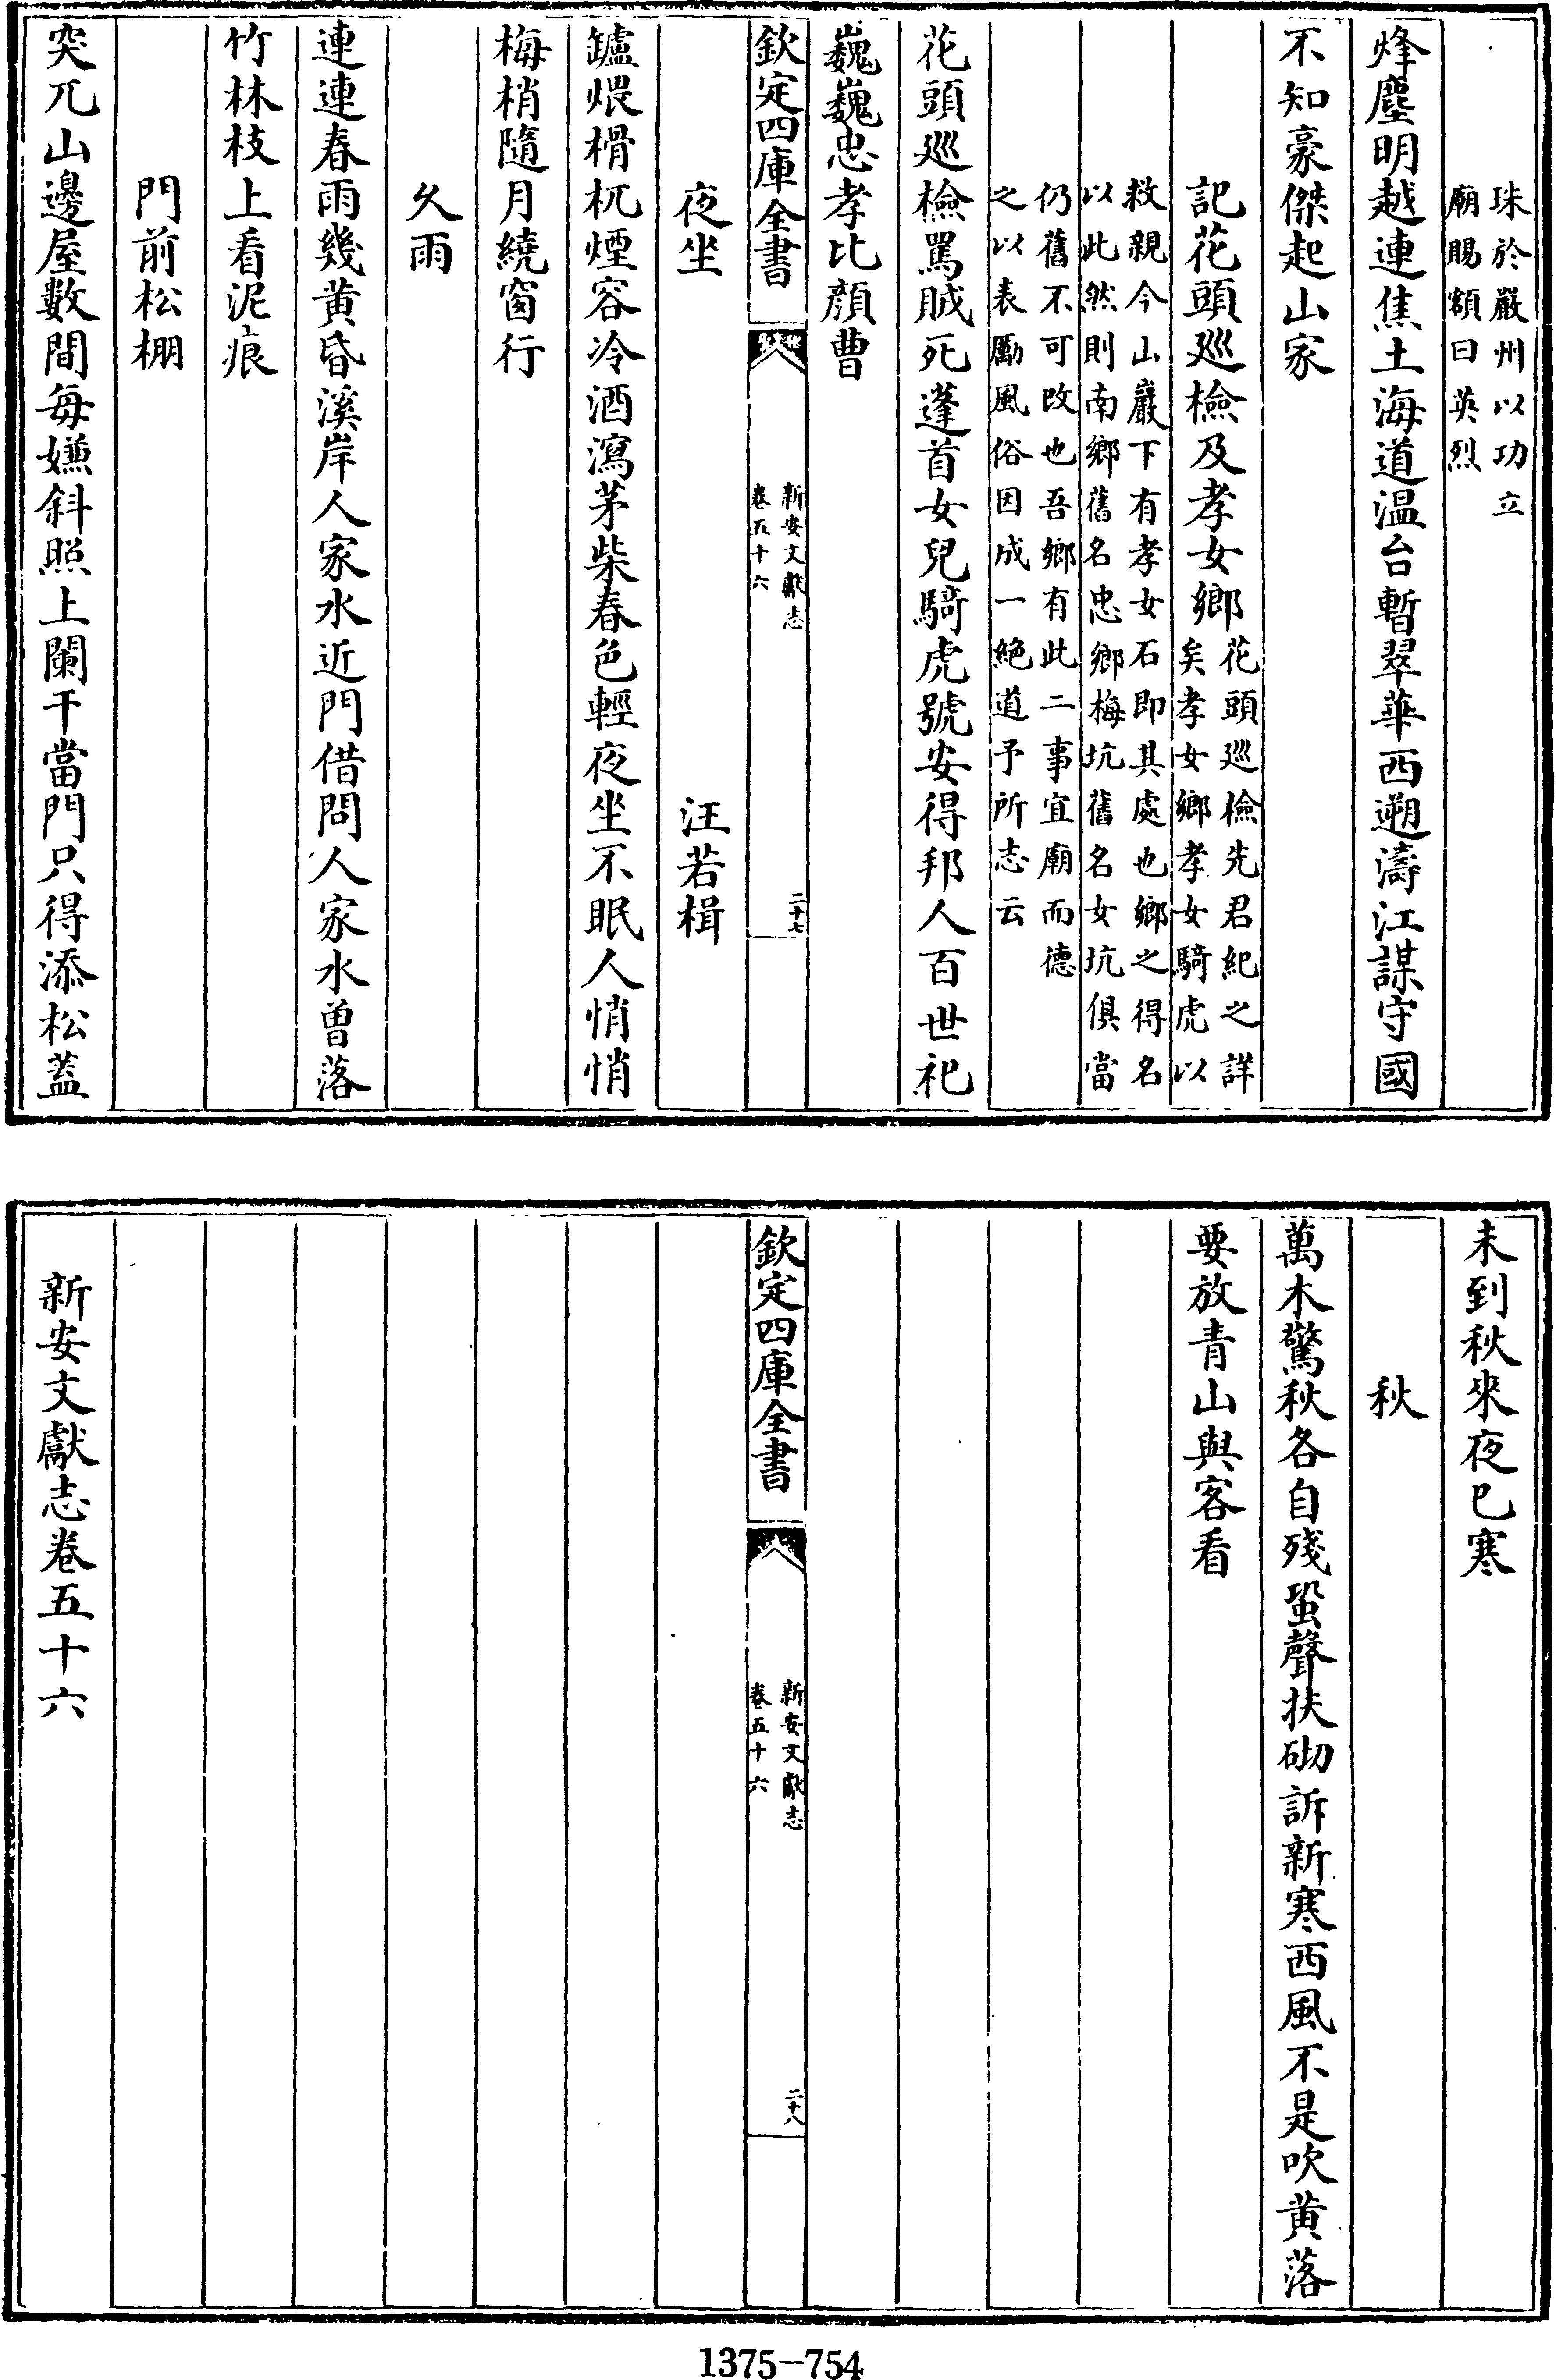 珠於嚴州以功立
廟賜額曰英烈
烽塵明越連焦土海道溫台暫翠華西遡濤江謀守國
不知豪傑起山家
記花頭巡檢及孝女鄉
花頭巡檢先君紀之詳
矣孝女鄉孝女騎虎以
救親今山巖下有孝女石即其處也鄉之得名
以此然則南鄉舊名忠鄉梅坑舊名女坑俱當
仍舊不可改也吾鄉有此二事宜廟而德
之以表勵風俗因成一絕道予所志云
花頭巡檢罵賊死蓬首女兒騎虎號安得邦人百世祀
巍巍忠孝比顏曹
欽定四庫全書
新安文獻志
卷五十六
二十七
夜坐
汪若楫
鑪煨榾柮煙容冷酒瀉茅柴春色輕夜坐不眠人悄悄
梅梢隨月繞窗行
久雨
連連春雨幾黃昏溪岸人家水近門借問人家水曾落
竹林枝上看泥痕
門前松棚
突兀山邊屋數間每嫌斜照上闌干當門只得添松蓋
未到秋來夜已寒
秋
萬木驚秋各自殘蛩聲扶砌訴新寒西風不是吹黃落
要放青山與客看
欽定四庫全書
新安文獻志
卷五十六
二十八
新安文獻志卷五十六
1375-754